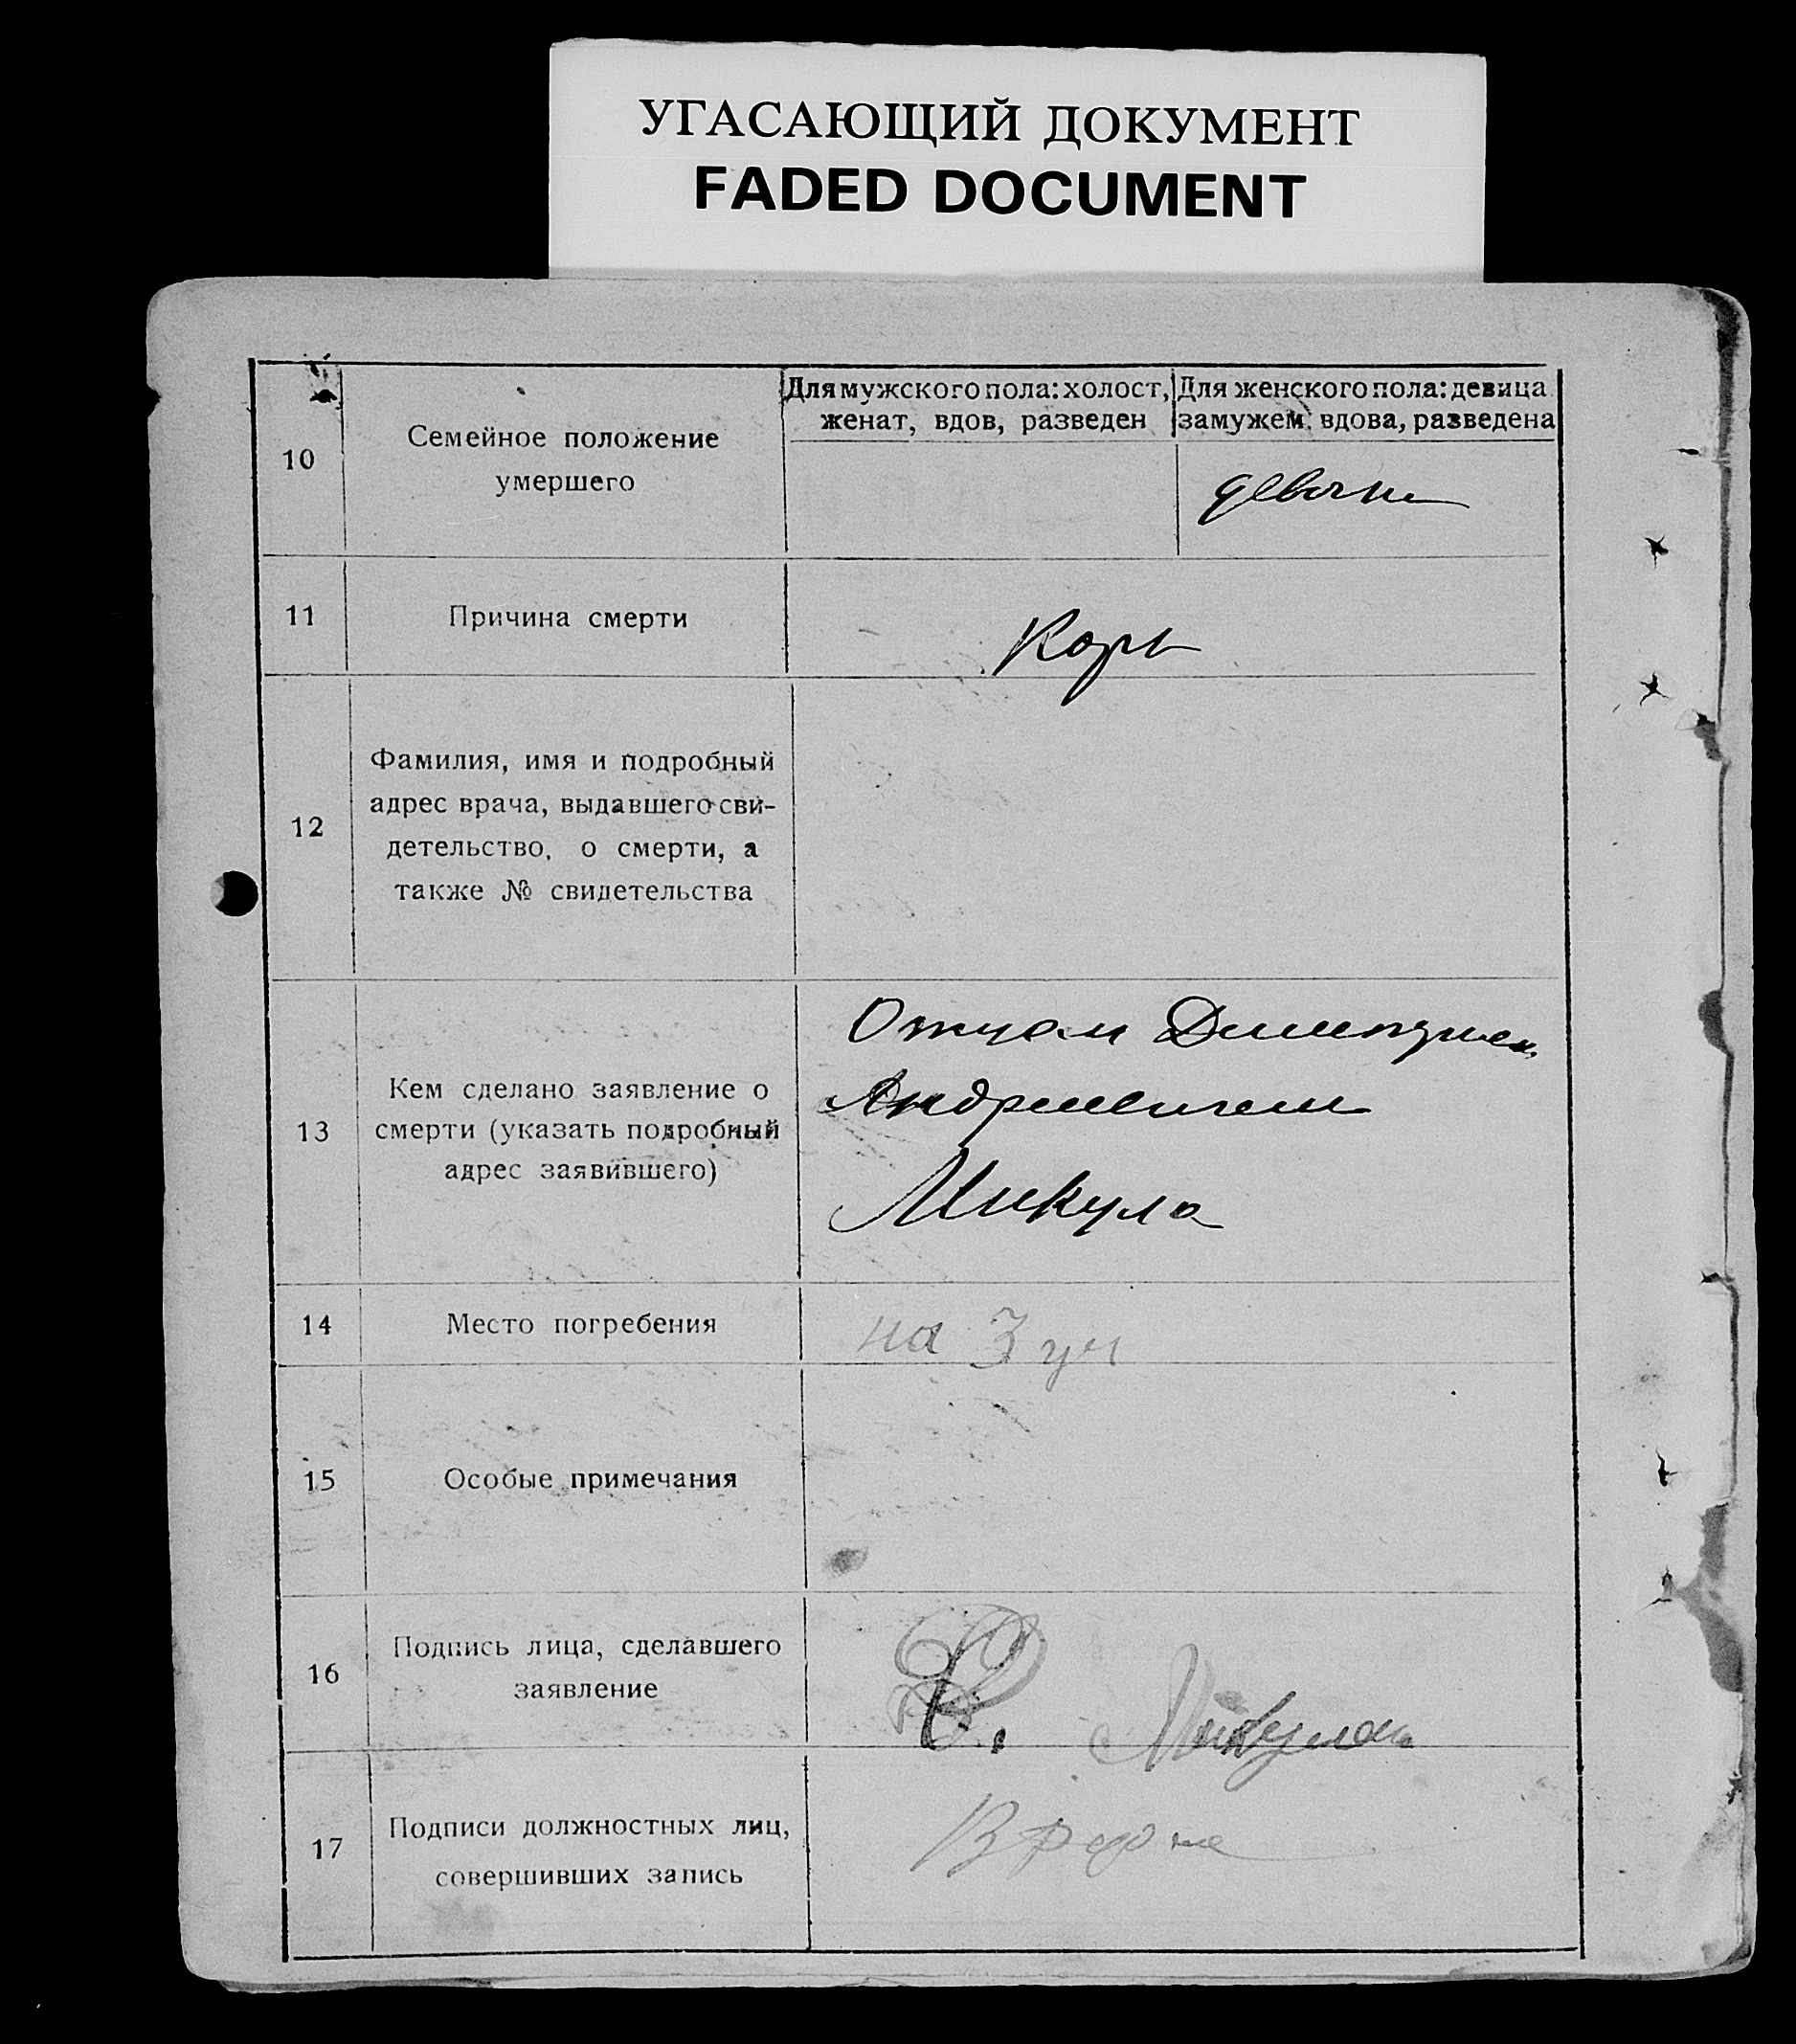 УГАСАЮЩИЙ ДОКУМЕНТ
FADED DOCUMENT
10
Семейное положение
умершего
Для мужского пола: холост,
женат, вдов, разведен
Для женского пола: девица
замужем, вдова, разведена
11
Причина смерти
Корь
12
Фамилия, имя и подробный
адрес врача, выдавшего сви-
детельство, о смерти, а
также № свидетельства
13
Кем сделано заявление о
смерти (указать подробный
адрес заявившего)
Отцом Дмитрием
Андреевичем
Микула
14
Место погребения
на 3 уч
15
Особые примечания
16
Подпись лица, сделавшего
заявление
Микула
17
Подписи должностных лиц,
совершивших запись